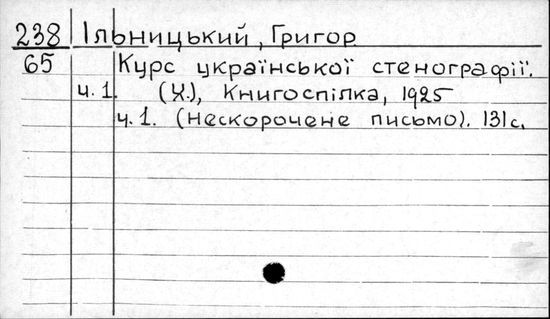 238 Ільницький, Григор
65 Курс української стенографії.
ч. 1. (Х.), Книгоспілка, 1925
ч. 1. (нескорочене письмо). 131 с.